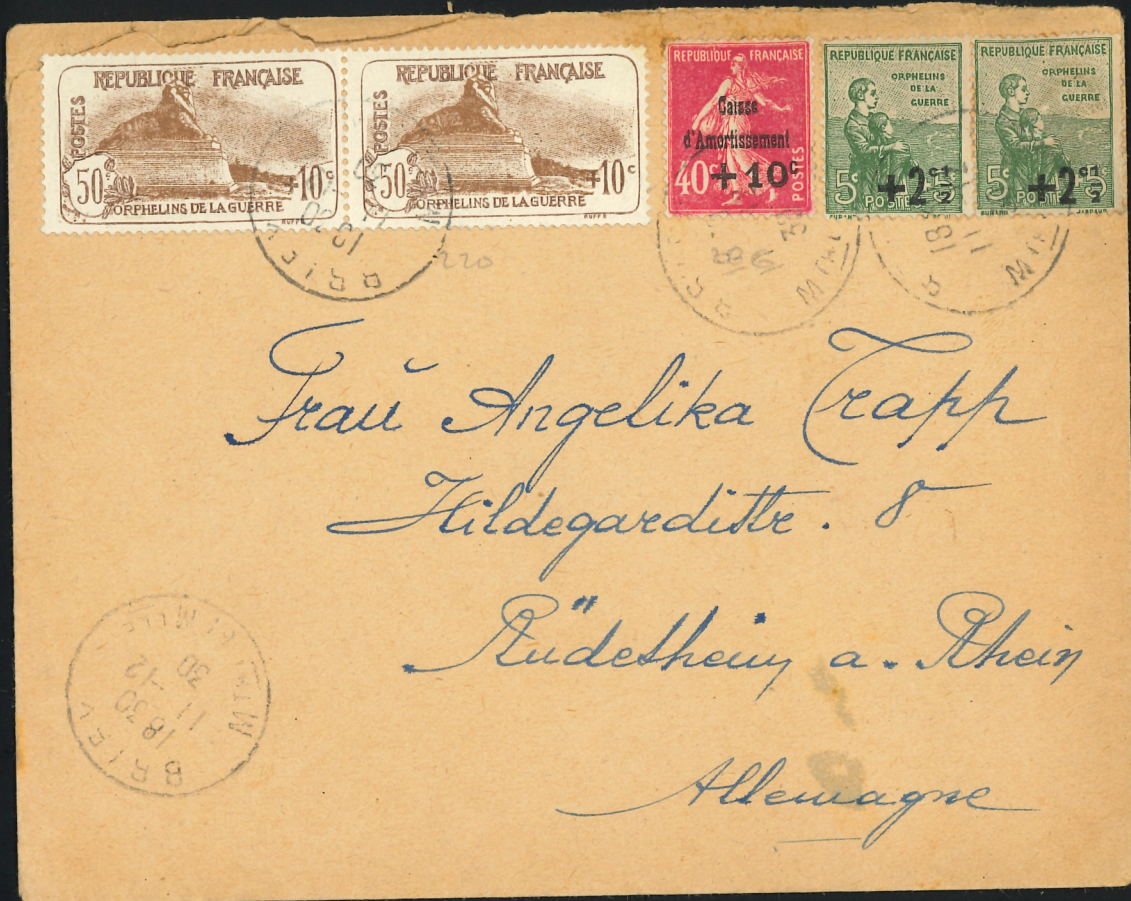 REPUBLIQUE FRANÇAISE
POSTES
50c +10c
ORPHELINS DE LA GUERRE
RUFFE
REPUBLIQUE FRANÇAISE
POSTES
50c +10c
ORPHELINS DE LA GUERRE
RUFFE
REPUBLIQUE FRANÇAISE
Caisse
d'Amortissement
40c +10c
POSTES
REPUBLIQUE FRANÇAISE
ORPHELINS
DE LA
GUERRE
5c +2c1/2
POSTES
REPUBLIQUE FRANÇAISE
ORPHELINS
DE LA
GUERRE
5c +2c1/2
POSTES
BRIEY
220
Frau Angelika Trapp
Hildegardistr. 8
Rüdesheim a. Rhein
Allemagne
BRIEY
18 30
11 -12
30